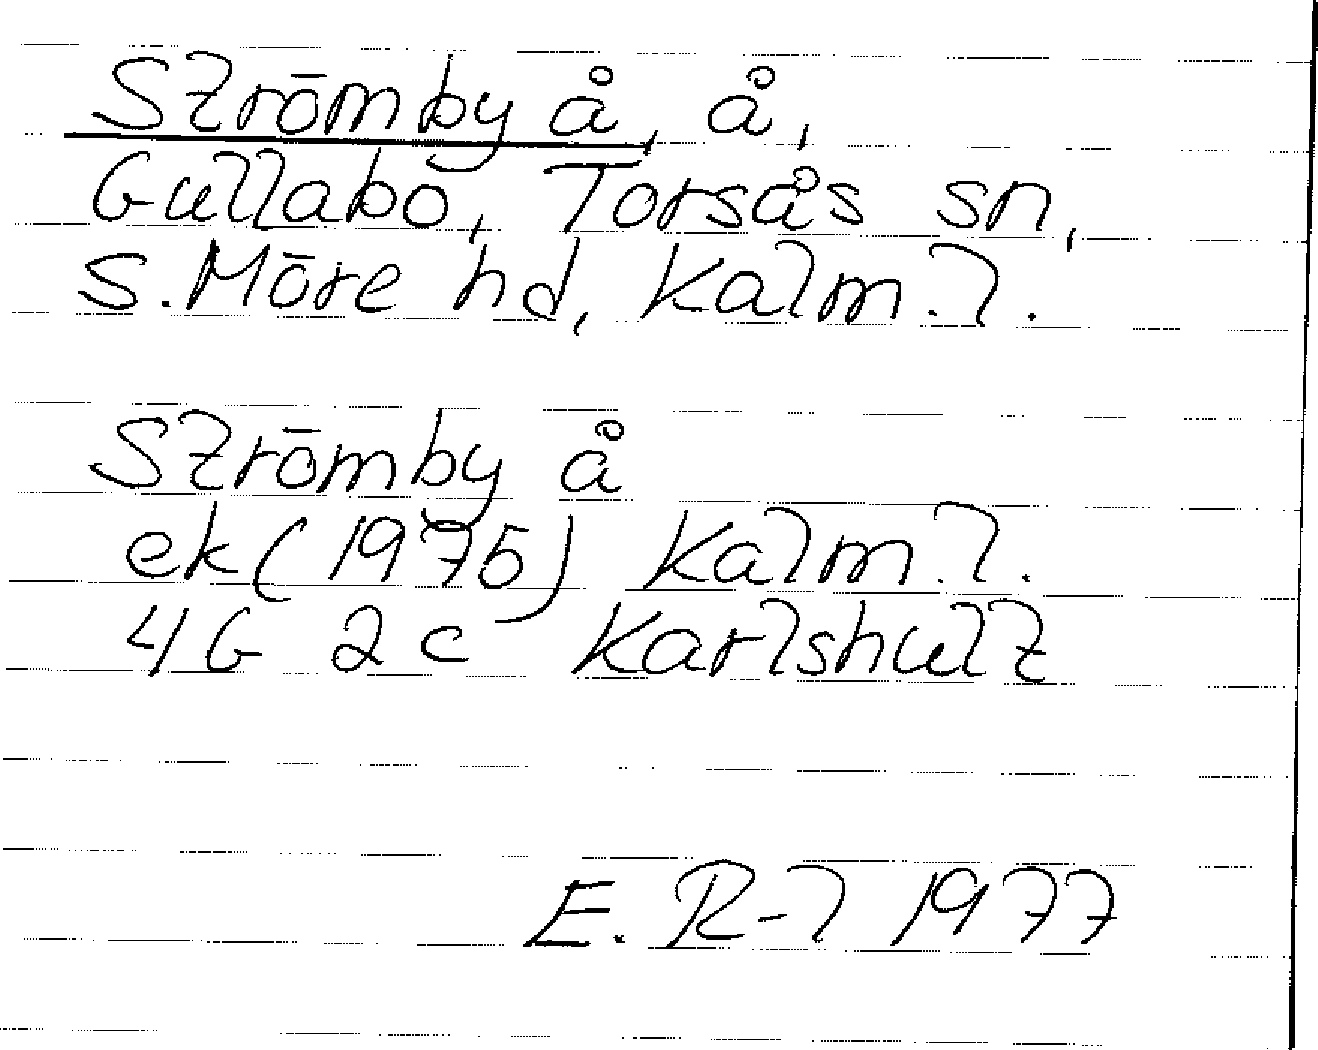 Strömby å, å,
Gullabo, Torsås sn,
S. Möre hd, Kalm. l.
Strömby å
ek (1975) Kalm. l.
4G 2c Karlshult
E. R-l 1977